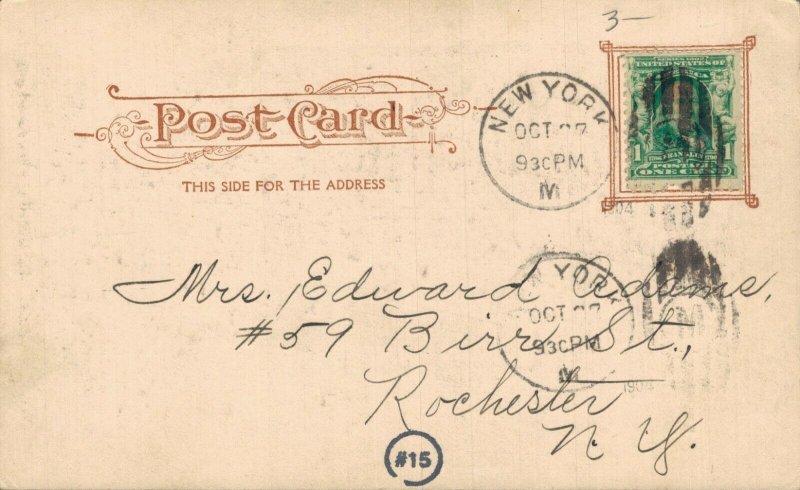 3-
Post Card
THIS SIDE FOR THE ADDRESS
NEW YORK
OCT 27
930PM
M
1904
SERIES 1902
UNITED STATES OF
AMERICA
1 1
FRANKLIN
POSTAGE
ONE CENT
NEW YORK
OCT 27
930PM
M
1904
Mrs. Edward Adams,
#59 Birr St.,
Rochester
N. Y.
#15